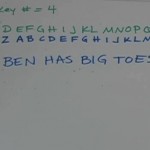 Key # = 4
D E F G H I J K L M N O P Q
Z A B C D E F G H I J K L M
BEN HAS BIG TOES